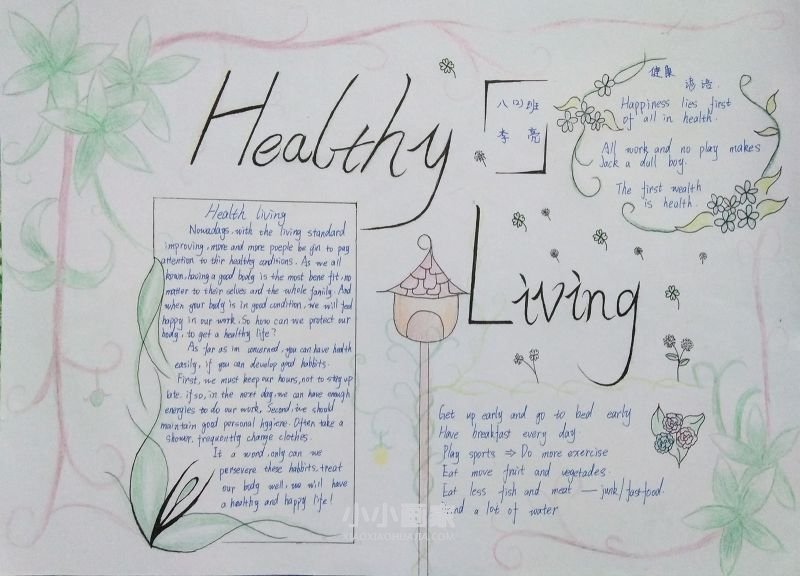 Healthy
Living
八(2)班
李亮
健康
谚语.
Happiness lies first
of all in health.
All work and no play makes
Jack a dull boy.
The first wealth
is health.
Health living
Nowadays, with the living standard
improving, more and more poeple be gin to pay
attention to thir healthy conditions. As we all
known, having a good body is the most bene fit, no
matter to their selves and the whole family. And
when your body is in good condition, we will feel
happy in our work. So how can we protect our
body, to get a healthy life?
As far as im concerned, you can have health
easily, if you can develop good habbits.
First, we must keep our hours, not to stay up
late. if so, in the next day, we can have enough
energies to do our work, Second, we should
maintain good personal hygiene. Often take a
shower, frequently change clothes.
It a word, only can we
persevere these habbits, treat
our body well, we will have
a healthy and happy life!
Get up early and go to bed early
Have breakfast every day.
Play sports ⇒ Do more exercise
Eat move fruit and vegetades.
Eat less fish and meat — junk/fastfood.
and a lot of water
小小画家
XIAOXIAOHUAJIA.COM